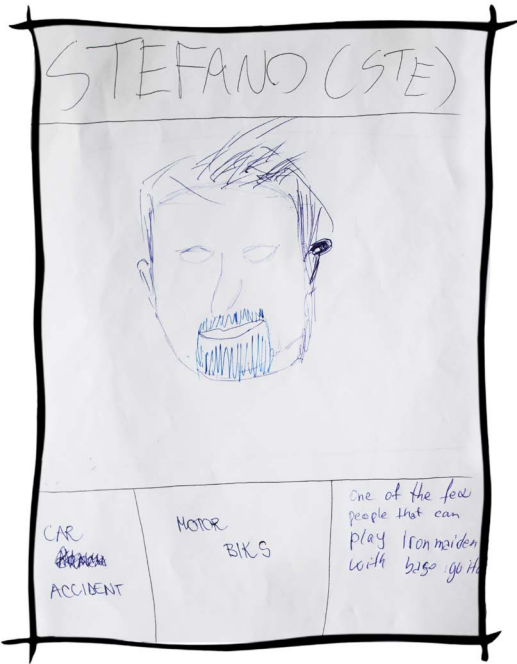 STEFANO (STE)
CAR
ACCIDENT
MOTOR
BIKS
One of the few
people that can
play Iron maiden
with base guita